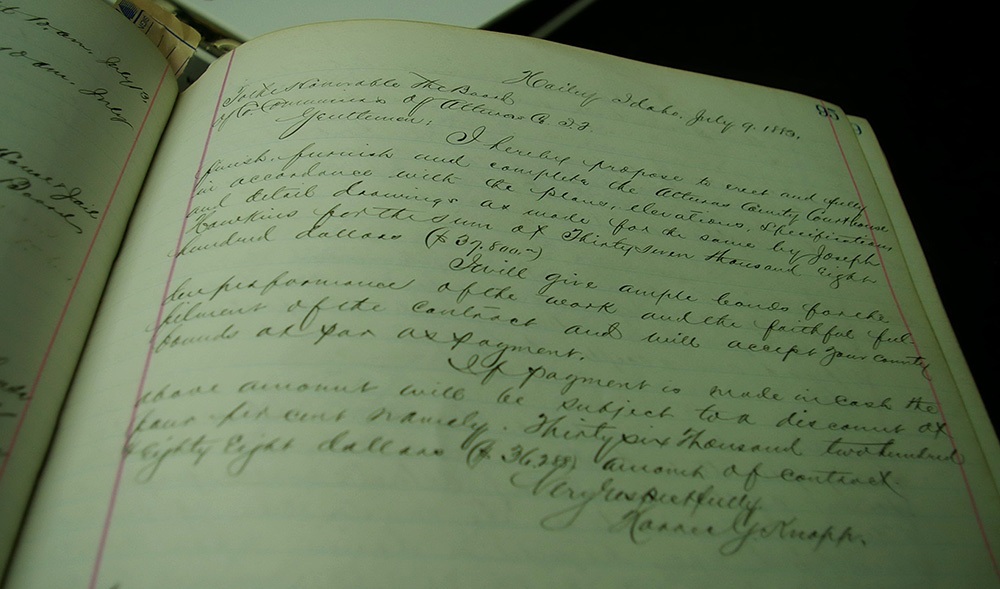 t 10. a.m. July 13.
10 a.m. July
House & Jail
Board
85
Hailey Idaho, July 9. 1883.
To the Honorable The Board
of Co. Commrs of Alturas Co. I.T.
Gentlemen;
I hereby propose to erect and fully
finish, furnish and complete the Alturas County Courthouse
in accordance with the plans, elevations, specifications
and detail drawings as made for the same by Joseph
Hawkins for the sum of Thirty seven Thousand Eight
hundred dollars ($37,800.-)
I will give ample bonds for the
due performance of the work and the faithful ful-
filment of the contract and will accept your county
bounds at par as payment.
If payment is made in cash the
above amount will be subject to a discount of
four per cent namely. Thirty six Thousand two hundred
& Eighty Eight dollars ($36,288) amount of contract.
Very respectfully
Knapp.